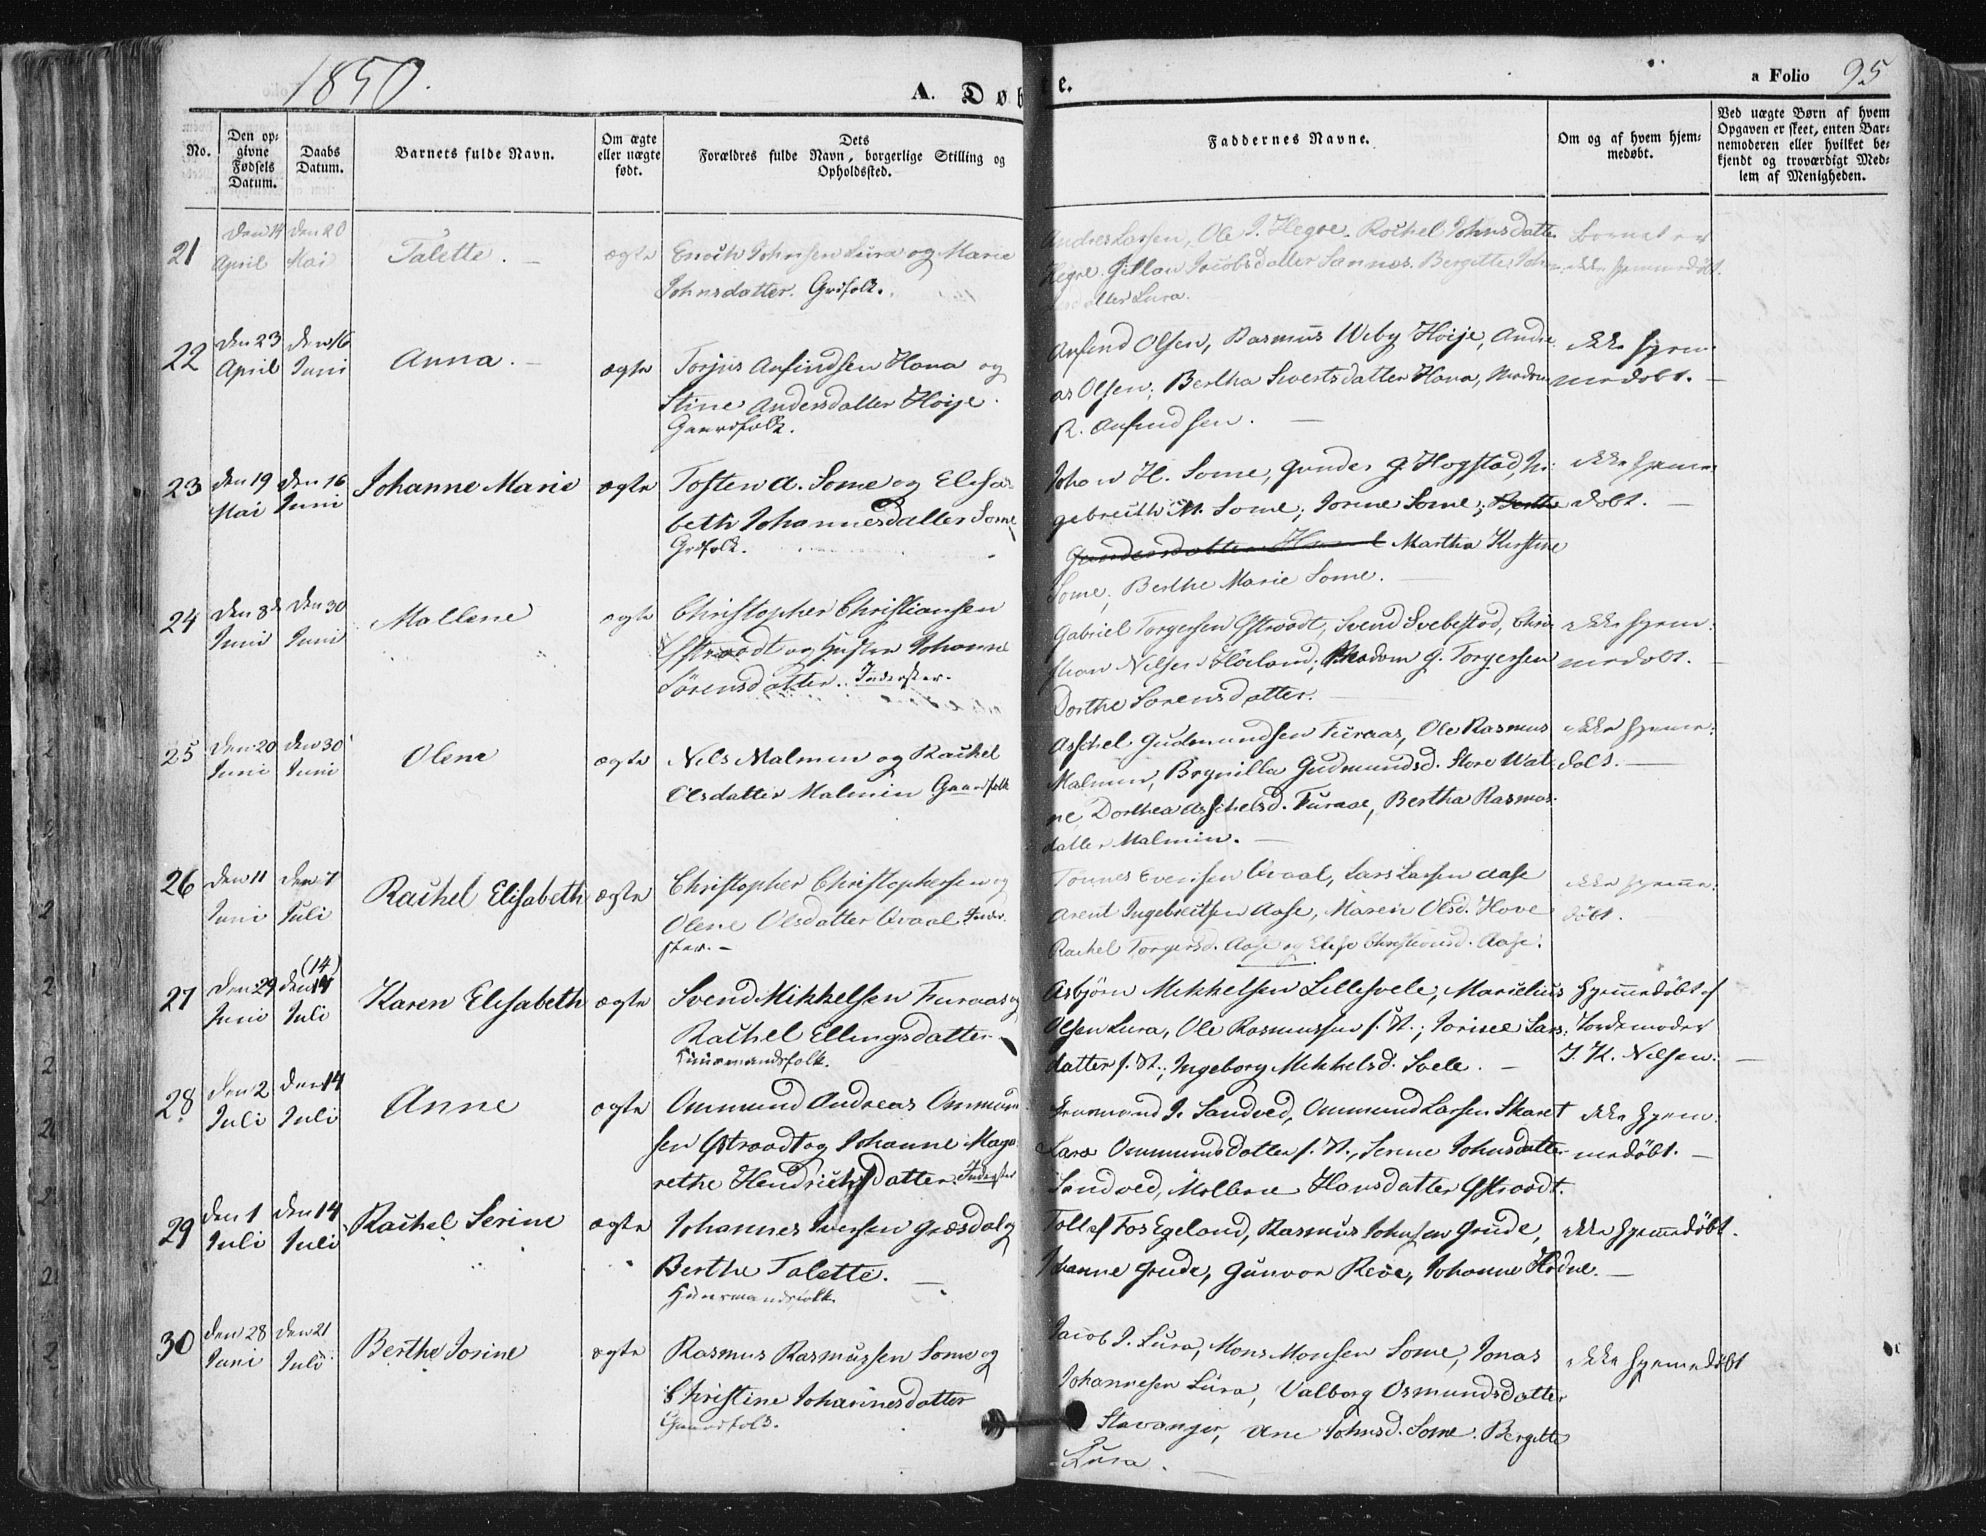 1850.
A. Døb
e.
a Folio 95
No.
Den op-
givne
Fødsels
Datum.
Daabs
Datum.
Barnets fulde Navn.
Om ægte
eller uægte
født.
Dets
Forældres fulde Navn, borgerlige Stilling og
Opholdssted.
Faddernes Navne.
Om og af hvem hjem-
medøbt.
Ved uægte Børn af hvem
Opgaven er skeet, enten Bar-
nemoderen eller hvilket be-
kjendt og troværdigt Med-
lem af Menigheden.
21
Den 14
April
Den 20
Mai
Talette. -
ægte
Enoch Johnsen Lura og Marie
Johnsdatter. Grdfolk.
Andres Larsen, Ole J. Hegre. Rachel Johnsdatter
Hegre. Jacobsdatter Sannes. Bergitte John-
datter Lura.
Barnet er
ikke hjemmedöbt.
22
Den 23
April
Den 16
Juni
Anna. -
ægte
Torjus Anfindsen Hana og
Stine Andersdatter Höije.
Gaardfolk.
Anfind Olsen, Rasmus Weby Höije, Andre-
as Olsen; Bertha Sivertsdatter Hana, Madam
R. Anfindsen. -
ikke hjem-
medobt. -
23
Den 19
Mai
Den 16
Juni
Johanne Marie
ægte
Tosten A. Some og Elisa-
beth Johannesdatter Some
Grdfolk.
Johan H. Some, Gunder G. Hogstad, In-
gebreith M. Some; Jorine Some; Berthe
Gundersdatter Martha Kirstine
Some, Berthe Marie Some. -
ikke hjemme-
dobt. -
24
Den 8d
Juni
Den 30
Juni
Mallene
ægte
Christopher Christiansen
Östraadt og Hustru Johanne
Sörensdatter. Inderster.
Gabriel Torgersen Östraadt, Svend Svebestad, Chri-
stian Nilsen Höiland, Madam G. Torgersen
Dorthe Sorensdatter. -
ikke hjem-
medobt. -
25
Den 20
Juni
Den 30
Juni
Olene
ægte
Nils Malmin og Rachel
Olsdatter Malmin Gaardfolk
Asschel Gudmundsen Furaas, Ole Rasmus
Malmin, Brynilla Gudmundsd. Store Wat-
ne, Dorthea Asschelsd. Furaae, Bertha Rasmus-
datter Malmin. -
ikke hjemme-
dobt. -
26
Den 11
Juni
Den 7
Juli
Rachel Elisabeth
ægte
Christopher Christophersen og
Olene Olsdatter Qvaal Inder-
ster. -
Tonnes Evensen Qvaal, Lars Larsen Aase
Arent Ingebreitsen Aase, Maren Olsd. Hove
Rachel Torgersd. Aase og Elise Christiansd. Aase.
ikke hjemme-
döbt.
27
Den 29
Juni
(14)
Den 14
Juli
Karen Elisabeth
ægte
Svend Mikkelsen Furaas og
Rachel Ellingsdatter.
Huusmandsfolk.
Asbjörn Mikkelsen Lillesvele, Marcelius
Olsen Lura, Ole Rasmussen s. St.; Jorine Lars-
datter s. St.; Ingeborg Mikkelsd. Svele. -
Hjemmedöbt af
Jordemoder
J. K. Nilsen. -
28
Den 2
Juli
Den 14
Juli
Anne
ægte
Ommund Andreas Ommund-
sen Östraadt og Johanne Mag-
rethe Hendrichsdatter Inderster
J. Sandved, Ommund Larsen Skaret
Lars Ommundsdatter s. St., Serine Johnsdatter
Sandved, Mallene Hansdatter Östraadt.
ikke hjem-
medöbt. -
29
Den 1
Juli
Den 14
Juli
Rachel Serine
ægte
Johannes Iversen Græsdal og
Berthe Talette. -
Huusmandsfolk.
Tollef Fos Egeland, Rasmus Johnsen Grude,
Johanne Grude, Gunvor Reve, Johanne Hodne. -
ikke hjemmedöbt.
30
Den 28
Juni
Den 21
Juli
Berthe Jorine
ægte
Rasmus Rasmussen Some og
Christine Johannesdatter
Gaardfolk.
Jacob J. Lura, Mons Monsen Some, Jonas
Johannesen Lura, Valborg Osmundsdatter
Stavanger, Ane Johnsd. Some. Bergitte
Lura. -
ikke hjemmedöbt